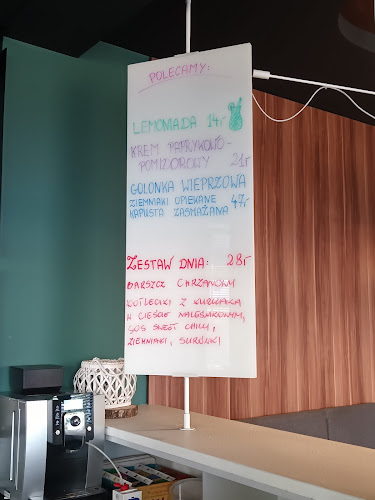 POLECAMY:
LEMONIADA 14r
KREM PAPRYKOWO-
POMIDOROWY 21r
GOLONKA WIEPRZOWA
ZIEMNIAKI OPIEKANE 47-
KAPUSTA ZASMAŻANA
ZESTAW DNIA: 28r
BARSZCZ CHRZANOWY
KOTLECIKI Z KURCZAKA
W CIEŚCIE NALEŚNIKOWYM,
SOS SWEET CHILLI,
ZIEMNIAKI, SURÓWKI